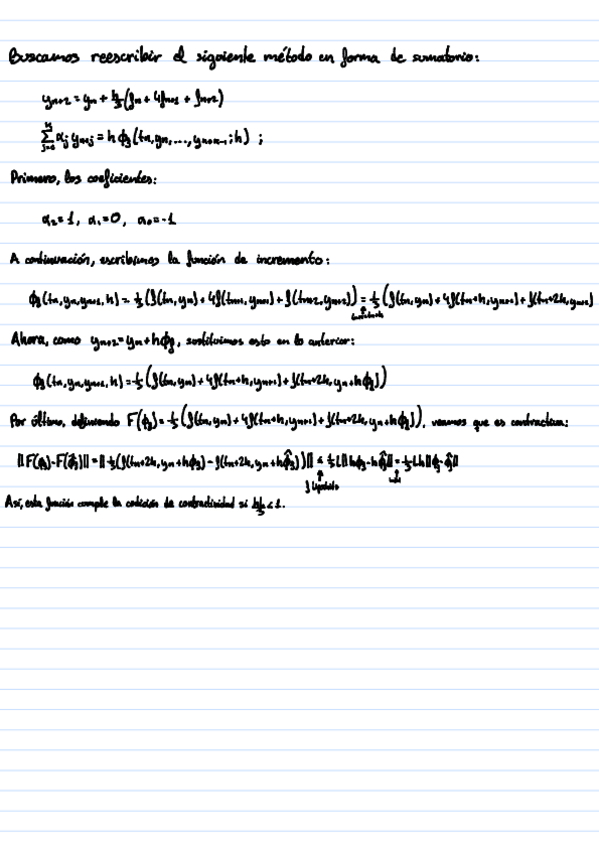 Buscamos reescribir el siguiente método en forma de sumatorio:
yₙ₊₂ = yₙ + h/3 (fₙ + 4fₙ₊₁ + fₙ₊₂)
∑ⱼ₌₀ᵏ αⱼ yₙ₊ⱼ = h ϕ_f (tₙ, yₙ, ..., yₙ₊ₖ₋₁; h) ;
Primero, los coeficientes:
α₂ = 1, α₁ = 0, α₀ = -1
A continuación, escribimos la función de incremento:
ϕ_f (tₙ, yₙ, yₙ₊₁, h) = 1/3 (f(tₙ, yₙ) + 4f(tₙ₊₁, yₙ₊₁) + f(tₙ₊₂, yₙ₊₂)) = 1/3 (f(tₙ, yₙ) + 4f(tₙ+h, yₙ₊₁) + f(tₙ+2h, yₙ₊₂)
Ahora, como yₙ₊₂ = yₙ + hϕ_f, sustituimos esto en lo anterior:
ϕ_f (tₙ, yₙ, yₙ₊₁, h) = 1/3 (f(tₙ, yₙ) + 4f(tₙ+h, yₙ₊₁) + f(tₙ+2h, yₙ + hϕ_f))
Por último, definiendo F(ϕ_f) = 1/3 (f(tₙ, yₙ) + 4f(tₙ+h, yₙ₊₁) + f(tₙ+2h, yₙ + hϕ_f)), veamos que es contractiva:
||F(ϕ_f) - F(ϕ̂_f)|| = || 1/3 (f(tₙ+2h, yₙ + hϕ_f) - f(tₙ+2h, yₙ + hϕ̂_f)) || ≤ 1/3 L || hϕ_f - hϕ̂_f || = 1/3 Lh || ϕ_f - ϕ̂_f ||
f Lipschitz
Así, esta función cumple la codición de contractividad si hL/3 < 1.